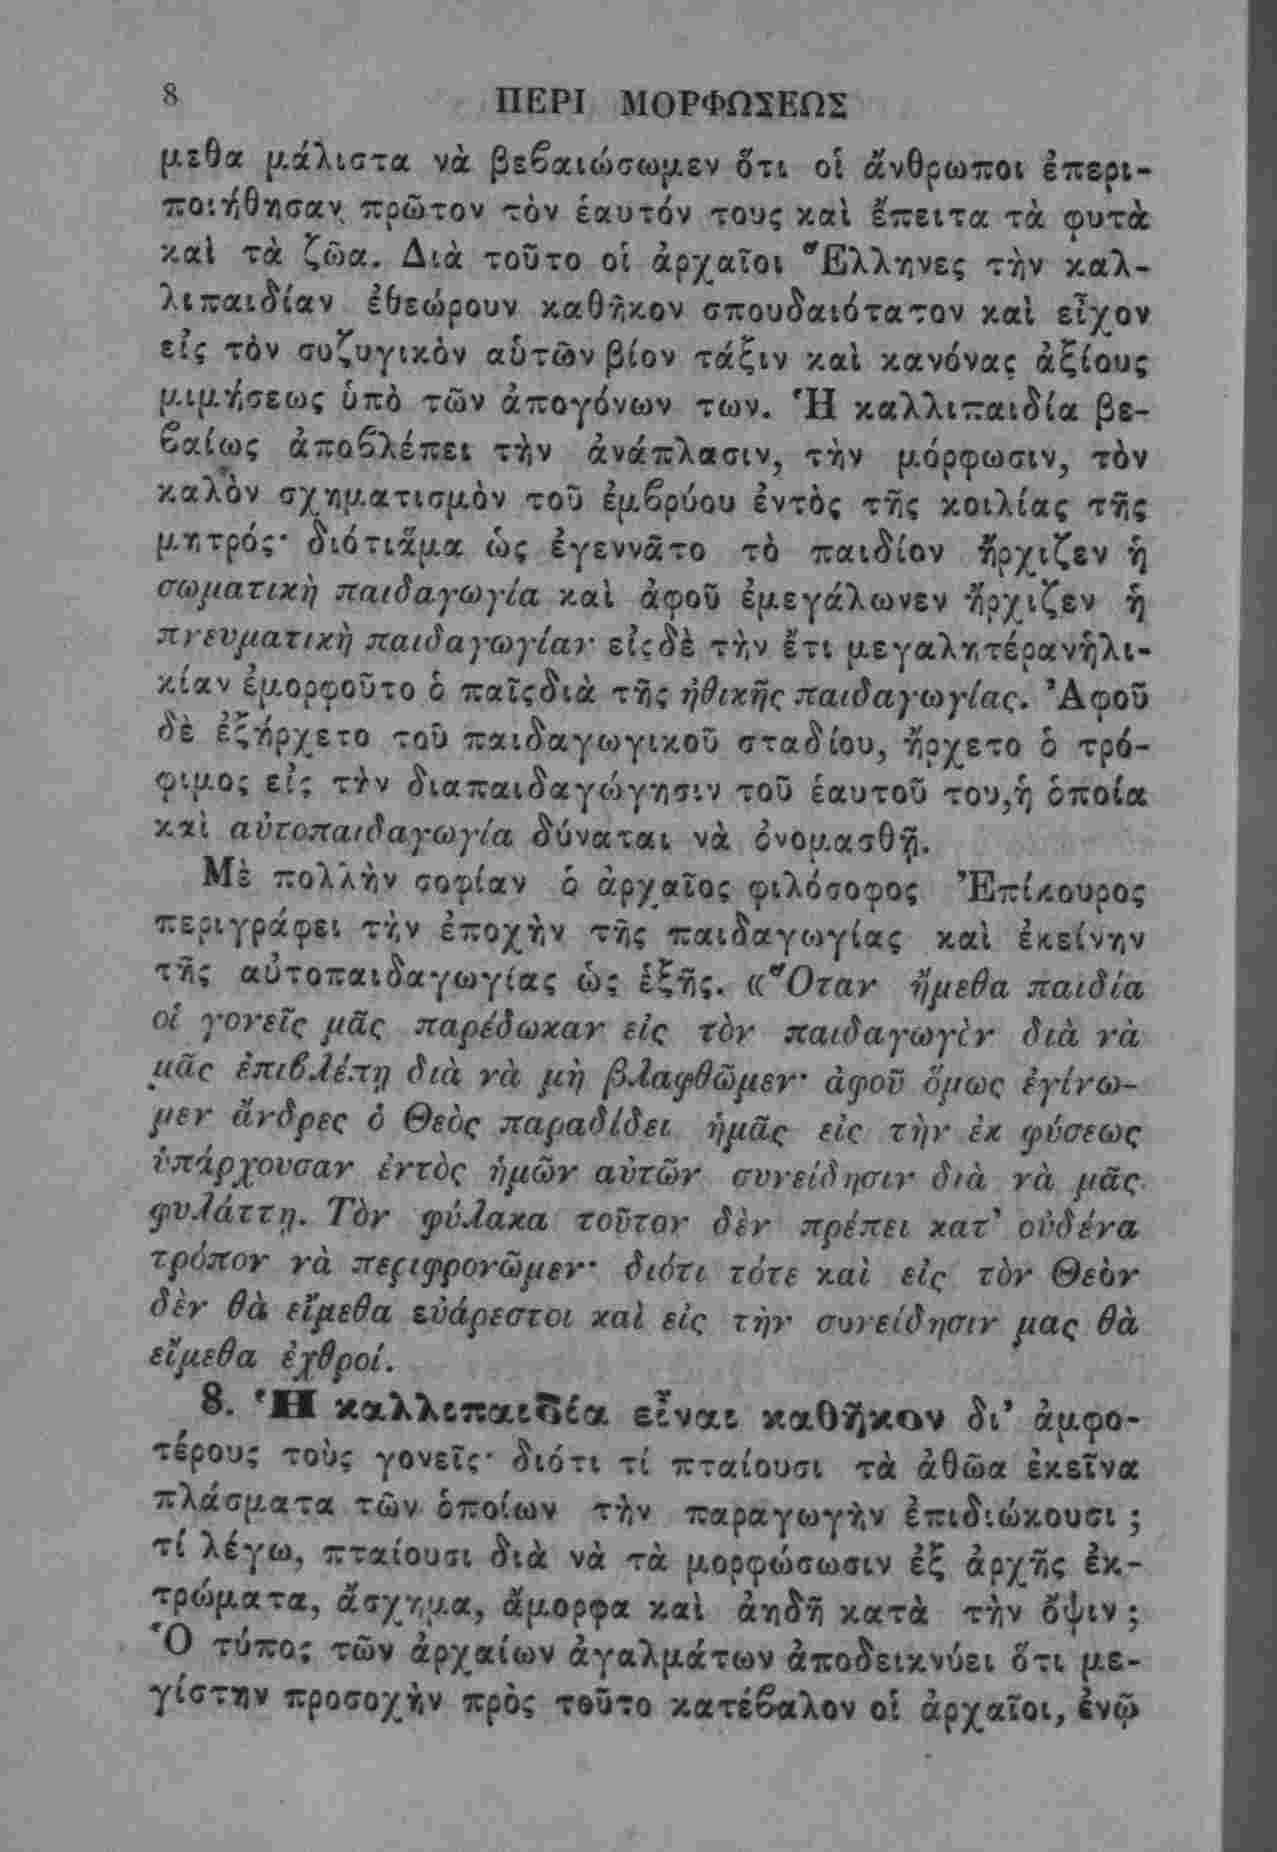 8
ΠΕΡΙ ΜΟΡΦΩΣΕΩΣ
μεθα μάλιστα νὰ βεβαιώσωμεν ὅτι οἱ ἄνθρωποι ἐπερι-
ποιήθησαν πρῶτον τὸν ἑαυτόν τους καὶ ἔπειτα τὰ φυτὰ
καὶ τὰ ζῶα. Διὰ τοῦτο οἱ ἀρχαῖοι Ἕλληνες τὴν καλ-
λιπαιδίαν ἐθεώρουν καθῆκον σπουδαιότατον καὶ εἶχον
εἰς τὸν συζυγικὸν αὑτῶν βίον τάξιν καὶ κανόνας ἀξίους
μιμήσεως ὑπὸ τῶν ἀπογόνων των. Ἡ καλλιπαιδία βε-
βαίως ἀποβλέπει τὴν ἀνάπλασιν, τὴν μόρφωσιν, τὸν
καλὸν σχηματισμὸν τοῦ ἐμβρύου ἐντὸς τῆς κοιλίας τῆς
μητρός· διότιἅμα ὡς ἐγεννᾶτο τὸ παιδίον ἤρχιζεν ἡ
σωματικὴ παιδαγωγία καὶ ἀφοῦ ἐμεγάλωνεν ἤρχιζεν ἡ
πνευματικὴ παιδαγωγίαν· εἰςδὲ τὴν ἔτι μεγαλητέρανἡλι-
κίαν ἐμορφοῦτο ὁ παῖςδιὰ τῆς ἠθικῆς παιδαγωγίας. Ἀφοῦ
δὲ ἐξήρχετο τοῦ παιδαγωγικοῦ σταδίου, ἤρχετο ὁ τρό-
φιμος εἰς τὴν διαπαιδαγώγησιν τοῦ ἑαυτοῦ του,ἡ ὁποία
καὶ αὐτοπαιδαγωγία δύναται νὰ ὀνομασθῇ.
Μὲ πολλὴν σοφίαν ὁ ἀρχαῖος φιλόσοφος Ἐπίκουρος
περιγράφει τὴν ἐποχὴν τῆς παιδαγωγίας καὶ ἐκείνην
τῆς αὐτοπαιδαγωγίας ὡς ἑξῆς. «Ὅταν ἤμεθα παιδία
οἱ γονεῖς μᾶς παρέδωκαν εἰς τὸν παιδαγωγὸν διὰ νὰ
μᾶς ἐπιβλέπῃ διὰ νὰ μὴ βλαφθῶμεν· ἀφοῦ ὅμως ἐγίνω-
μεν ἄνδρες ὁ Θεὸς παραδίδει ἡμᾶς εἰς τὴν ἐκ φύσεως
ὑπάρχουσαν ἐντὸς ἡμῶν αὐτῶν συνείδησιν διὰ νὰ μᾶς
φυλάττῃ. Τὸν φύλακα τοῦτον δὲν πρέπει κατ' οὐδένα
τρόπον νὰ περιφρονῶμεν· διότι τότε καὶ εἰς τὸν Θεὸν
δὲν θὰ εἴμεθα εὐάρεστοι καὶ εἰς τὴν συνείδησιν μας θὰ
εἴμεθα ἐχθροί.
8. Ἡ καλλιπαιδία εἶναι καθῆκον δι' ἀμφο-
τέρους τοὺς γονεῖς· διότι τί πταίουσι τὰ ἀθῶα ἐκεῖνα
πλάσματα τῶν ὁποίων τὴν παραγωγὴν ἐπιδιώκουσι ;
τί λέγω, πταίουσι διὰ νὰ τὰ μορφώσωσιν ἐξ ἀρχῆς ἐκ-
τρώματα, ἄσχημα, ἄμορφα καὶ ἀηδῆ κατὰ τὴν ὄψιν ;
Ὁ τύπος τῶν ἀρχαίων ἀγαλμάτων ἀποδεικνύει ὅτι με-
γίστην προσοχὴν πρὸς τοῦτο κατέβαλον οἱ ἀρχαῖοι, ἐνῷ